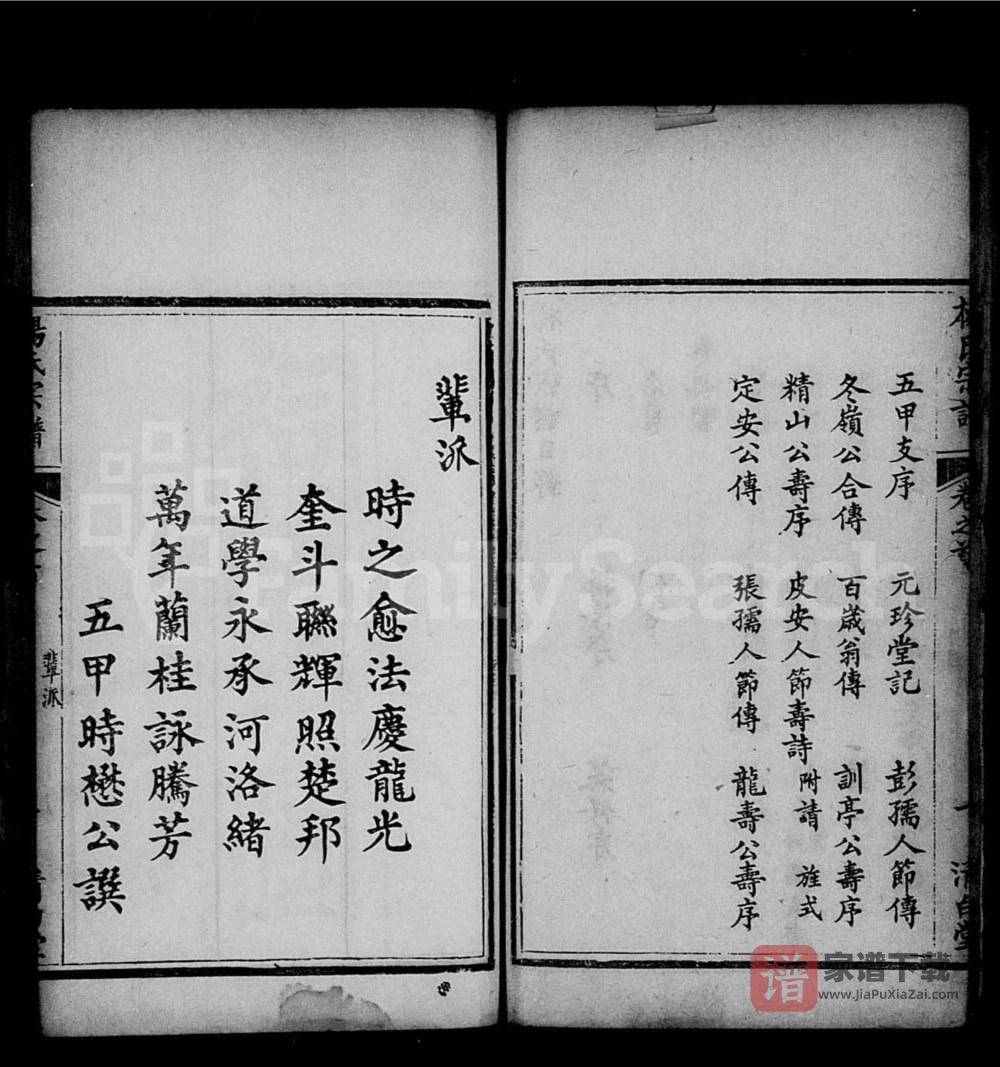 楊氏宗譜 卷之首 一 清白堂
五甲支序 元珍堂記 彭孺人節傳
冬嶺公合傳 百歲翁傳 訓亭公壽序
精山公壽序 皮安人節壽詩 附請 旌式
定安公傳 張孺人節傳 龍壽公壽序
輩派
時之愈法慶龍光
奎斗聯輝照楚邦
道學永承河洛緒
萬年蘭桂詠騰芳
五甲時懋公譔
楊氏宗譜
輩派
FamilySearch
谱
家谱下载
www.JiaPuXiaZai.com